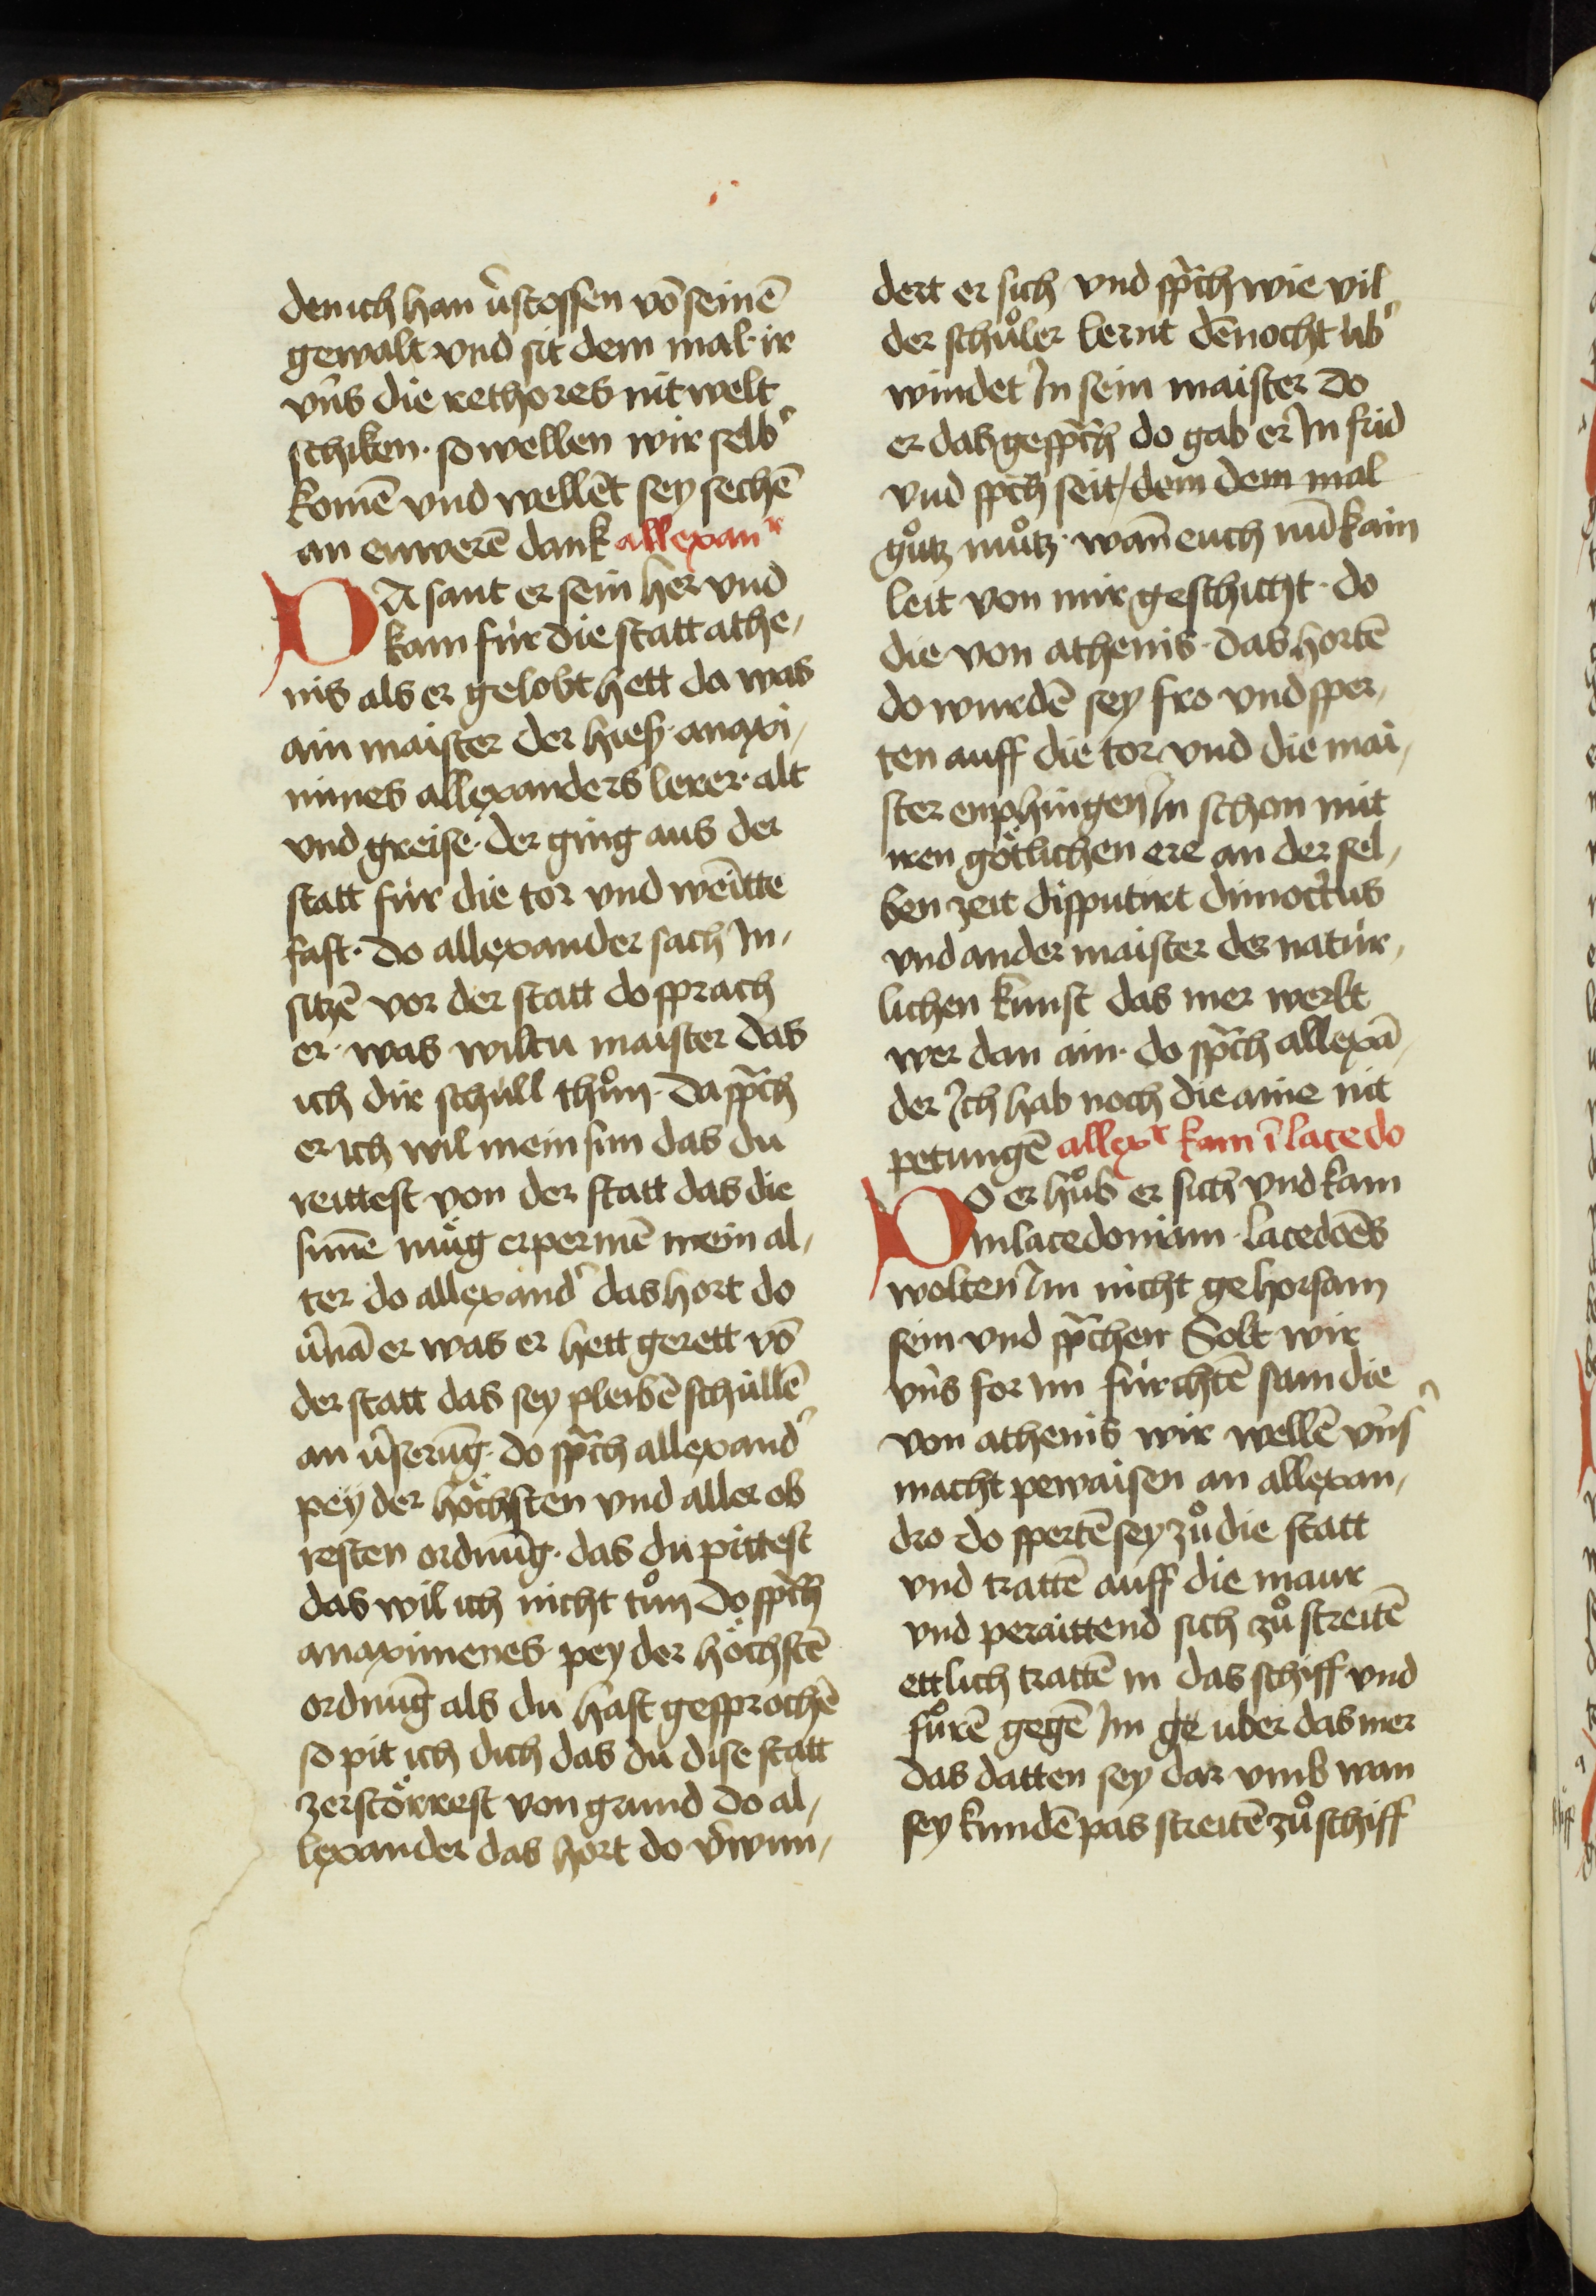 den ich han v̉stossen võ seinē
gewalt vnd sit dem mal ir
vns die rethores nit welt
schiken · so wellen wir selb̉
komē vnd wellēt sey sechē
an ewerē dank allexanr
DA sant er sein her vnd
kam für die statt athe,
nis als er gelobt hett da was
ain maister der hieß · anaxi,
mines allexanders lerer · alt
vnd greise · der ging aus der
statt für die tor vnd weītte
fast · do allexander sach In,
sitzē vor der statt do sprach
er · was wiltu maister das
ich dir schull thůn · da sp̃ch
er ich wil mein sun das du
reittest von der statt das die
sunē müg erpermē mein al,
ter do allexand̉ das hort do
v̉nā er was er hett gerett võ
der statt das sey pleibē schullē
an v̉serũg · do sp̃ch allexand̉
pey der höchsten vnd aller ob
resten ordnũg · das du pittest
das wil ich nicht tůn do sp̃ch
anaximenes pey der höchstē
ordnũg als du hast gesprochē
so pit ich dich das du dise statt
zerstörrest von grund do al,
lexander das hort do v̉wun,
dert er sich vnd sp̃ch wie vil
der schůler lernt dēnocht ub̉
windet In sein maister do
er das gesp̃ch do gab er In frid
vnd sp̃ch seit / dem dem mal
gůtz můtz · wañ euch nũ kain
leit von mir geschicht · do
die von athenis · das hortē
do wurdē sey fro vnd sper,
ten auff die tor vnd die mai,
ster enphingen In schon mit
iren götlichen ere an der sel,
ben zeit disputirt dimoct̉us
vnd ander maister der natur,
lichen kunst das mer werlt
wer dan ain · do sp̃ch allexā,
der Ich hab noch die aine nit
petungē allexr kam ī lacedo
DO er hůb er sich vnd kam
in lacedoniam · lacedoēs
wolten Im nicht gehorsam
sein vnd sp̃chen Solt wir
vns for im fürchtē sam die
von athenis wir wellē vns̉
macht pewaisen an allexan,
dro do spertē sey zů die statt
vnd trattē auff die maur
vnd peraittend sich zů streitē
ettlich trattē in das schiff vnd
fůrē gegē Im ge uber das mer
das datten sey dar vmb wan
sey kundē pas streitē zů schiff